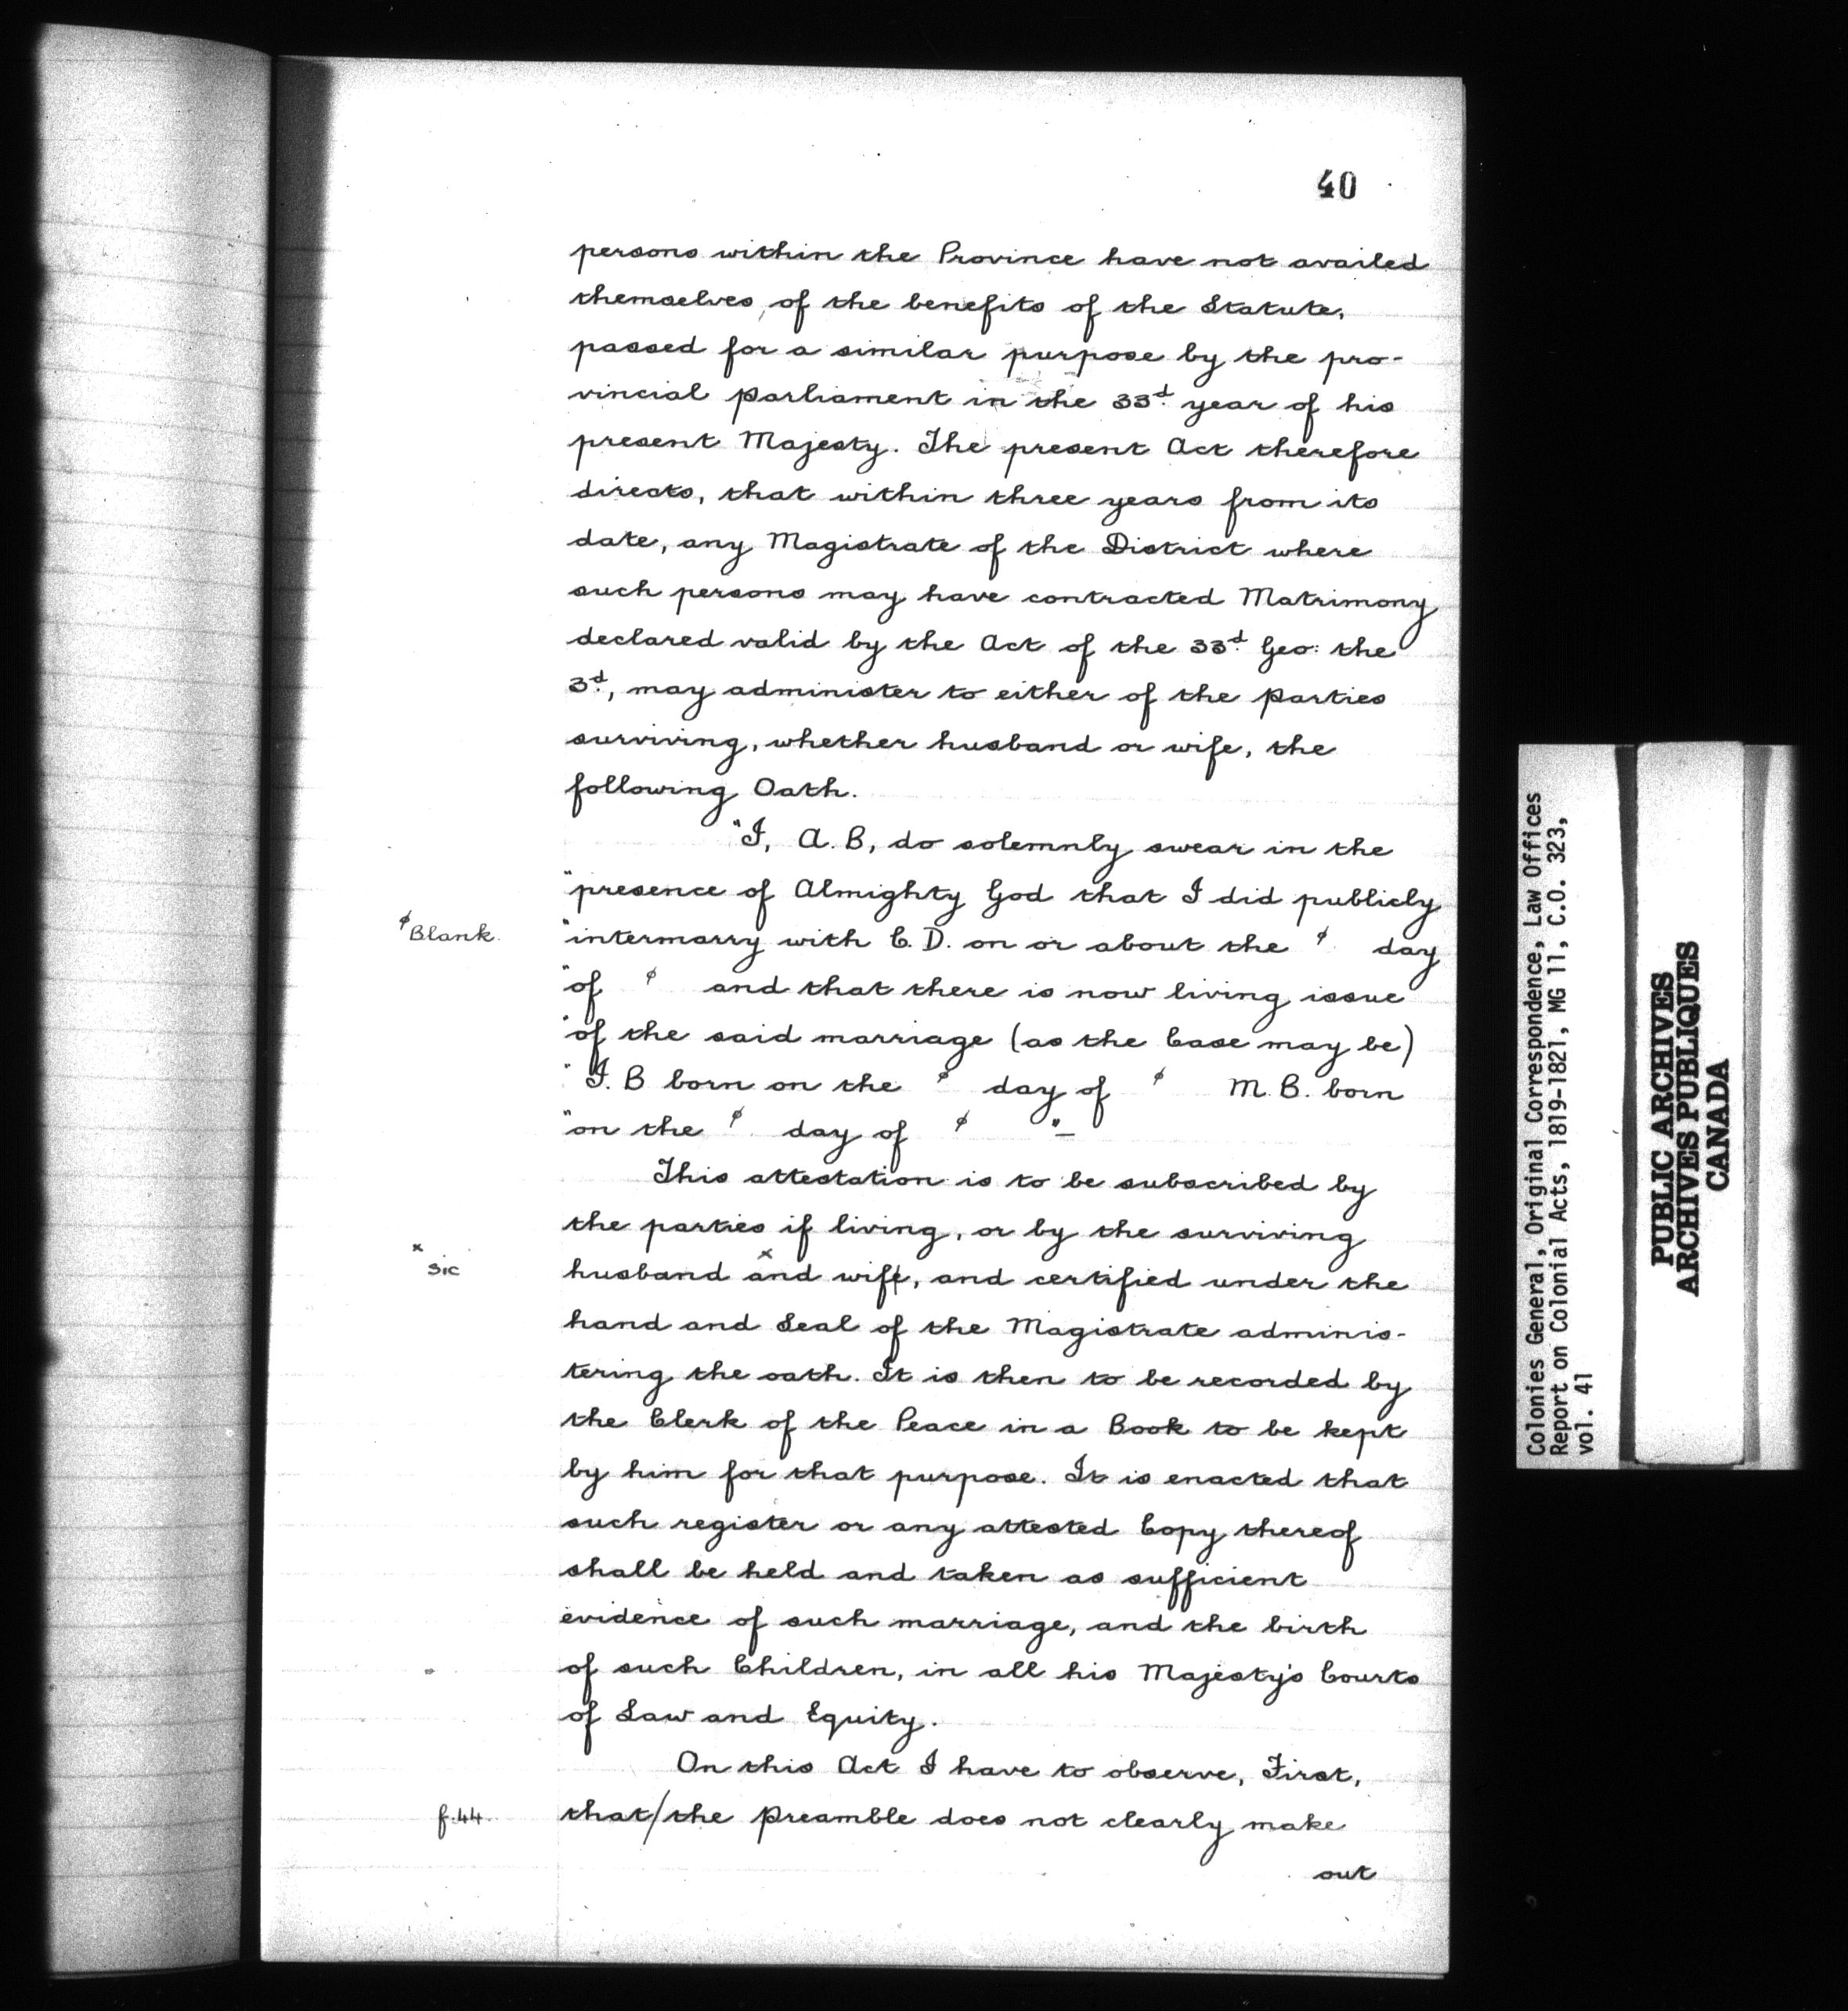 40
persons within the Province have not availed
themselves, of the benefits of the Statute,
passed for a similar purpose by the pro-
vincial parliament in the 33d. year of his
present Majesty. The present Act therefore
directs, that within three years from its
date, any Magistrate of the District where
such persons may have contracted Matrimony
declared valid by the Act of the 33d. Geo: the
3d., may administer to either of the parties
surviving, whether husband or wife, the
following Oath.
"I, A. B, do solemnly swear in the
"presence of Almighty God that I did publicly
ϕ Blank.
"intermarry with C. D. on or about the ϕ day
"of ϕ and that there is now living issue
"of the said marriage (as the Case may be)
"I. B born on the ϕ day of ϕ M. B. born
"on the ϕ day of ϕ "—
This attestation is to be subscribed by
the parties if living, or by the surviving
x sic
husband x and wife, and certified under the
hand and Seal of the Magistrate adminis-
tering the oath. It is then to be recorded by
the Clerk of the Peace in a Book to be kept
by him for that purpose. It is enacted that
such register or any attested Copy thereof
shall be held and taken as sufficient
evidence of such marriage, and the birth
of such Children, in all his Majesty's Courts
of Law and Equity.
On this Act I have to observe, First,
f.44.
that/the preamble does not clearly make
out
Colonies General, Original Correspondence, Law Offices
Report on Colonial Acts, 1819-1821, MG 11, C.O. 323,
vol. 41
PUBLIC ARCHIVES
ARCHIVES PUBLIQUES
CANADA